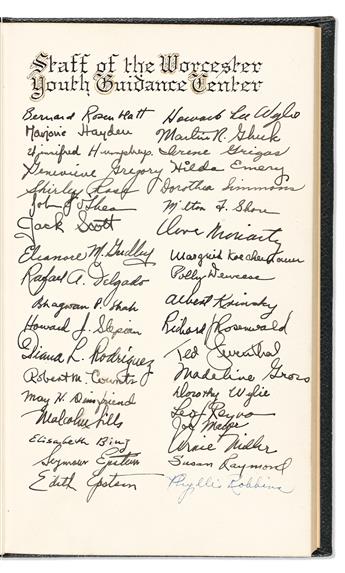 Staff of the Worcester
Youth Guidance Center
Bernard Rosenblatt
Howard Lee Wylie
Marjorie Hayden
Martin R. Gluck
Winifred Humphrey
Irene Grigas
Genevieve Gregory
Hilda Emery
Shirley
Dorothea Simmons
John J. O'Shea
Milton F. Shore
Jack Scott
Clare Moriarty
Eleanore M. Gridley
Margrid
Rafael A. Delgado
Polly Deweese
Bhagwan P. Shah
Albert Krinsky
Howard J. Slepian
Richard Rosenwald
Diana L. Rodriguez
Ted
Robert M. Counts
Madeline Gross
May H.
Dorothy Wylie
Malcolm Sills
Leo
Elisabeth Bing
Joe
Seymour Epstein
Susan Raymond
Edith Epstein
Phyllis Robbins